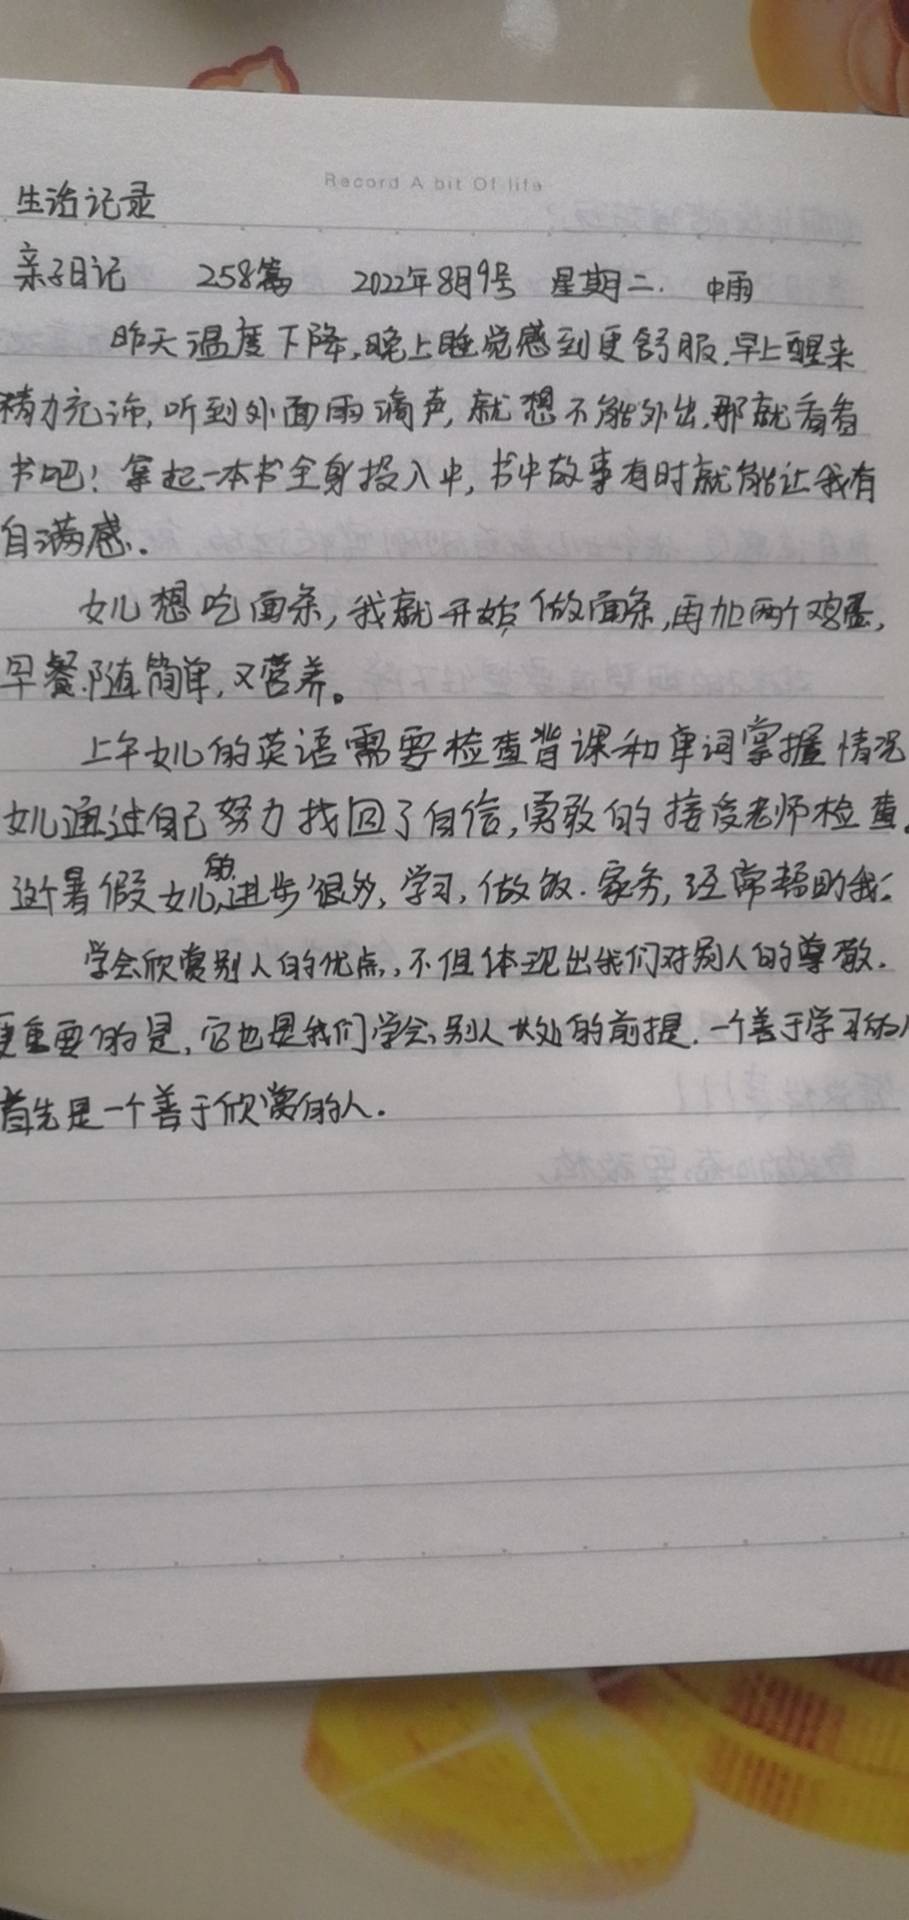 Record A bit Of life
生活记录
亲子日记 258篇 2022年8月9号 星期二. 中雨
昨天温度下降,晚上睡觉感到更舒服,早上醒来
精力充沛,听到外面雨滴声,就想不能外出,那就看看
书吧!拿起一本书全身投入中,书中故事有时就能让我有
自满感.
女儿想吃面条,我就开始做面条,再加两个鸡蛋,
早餐随简单,又营养。
上午女儿的英语需要检查背课和单词掌握情况
女儿通过自己努力找回了自信,勇敢的接受老师检查.
这个暑假女儿的进步很多,学习,做饭.家务,经常帮助我.
学会欣赏别人的优点,不但体现出我们对别人的尊敬.
更重要的是,它也是我们学会别人长处的前提.一个善于学习的人
首先是一个善于欣赏的人.